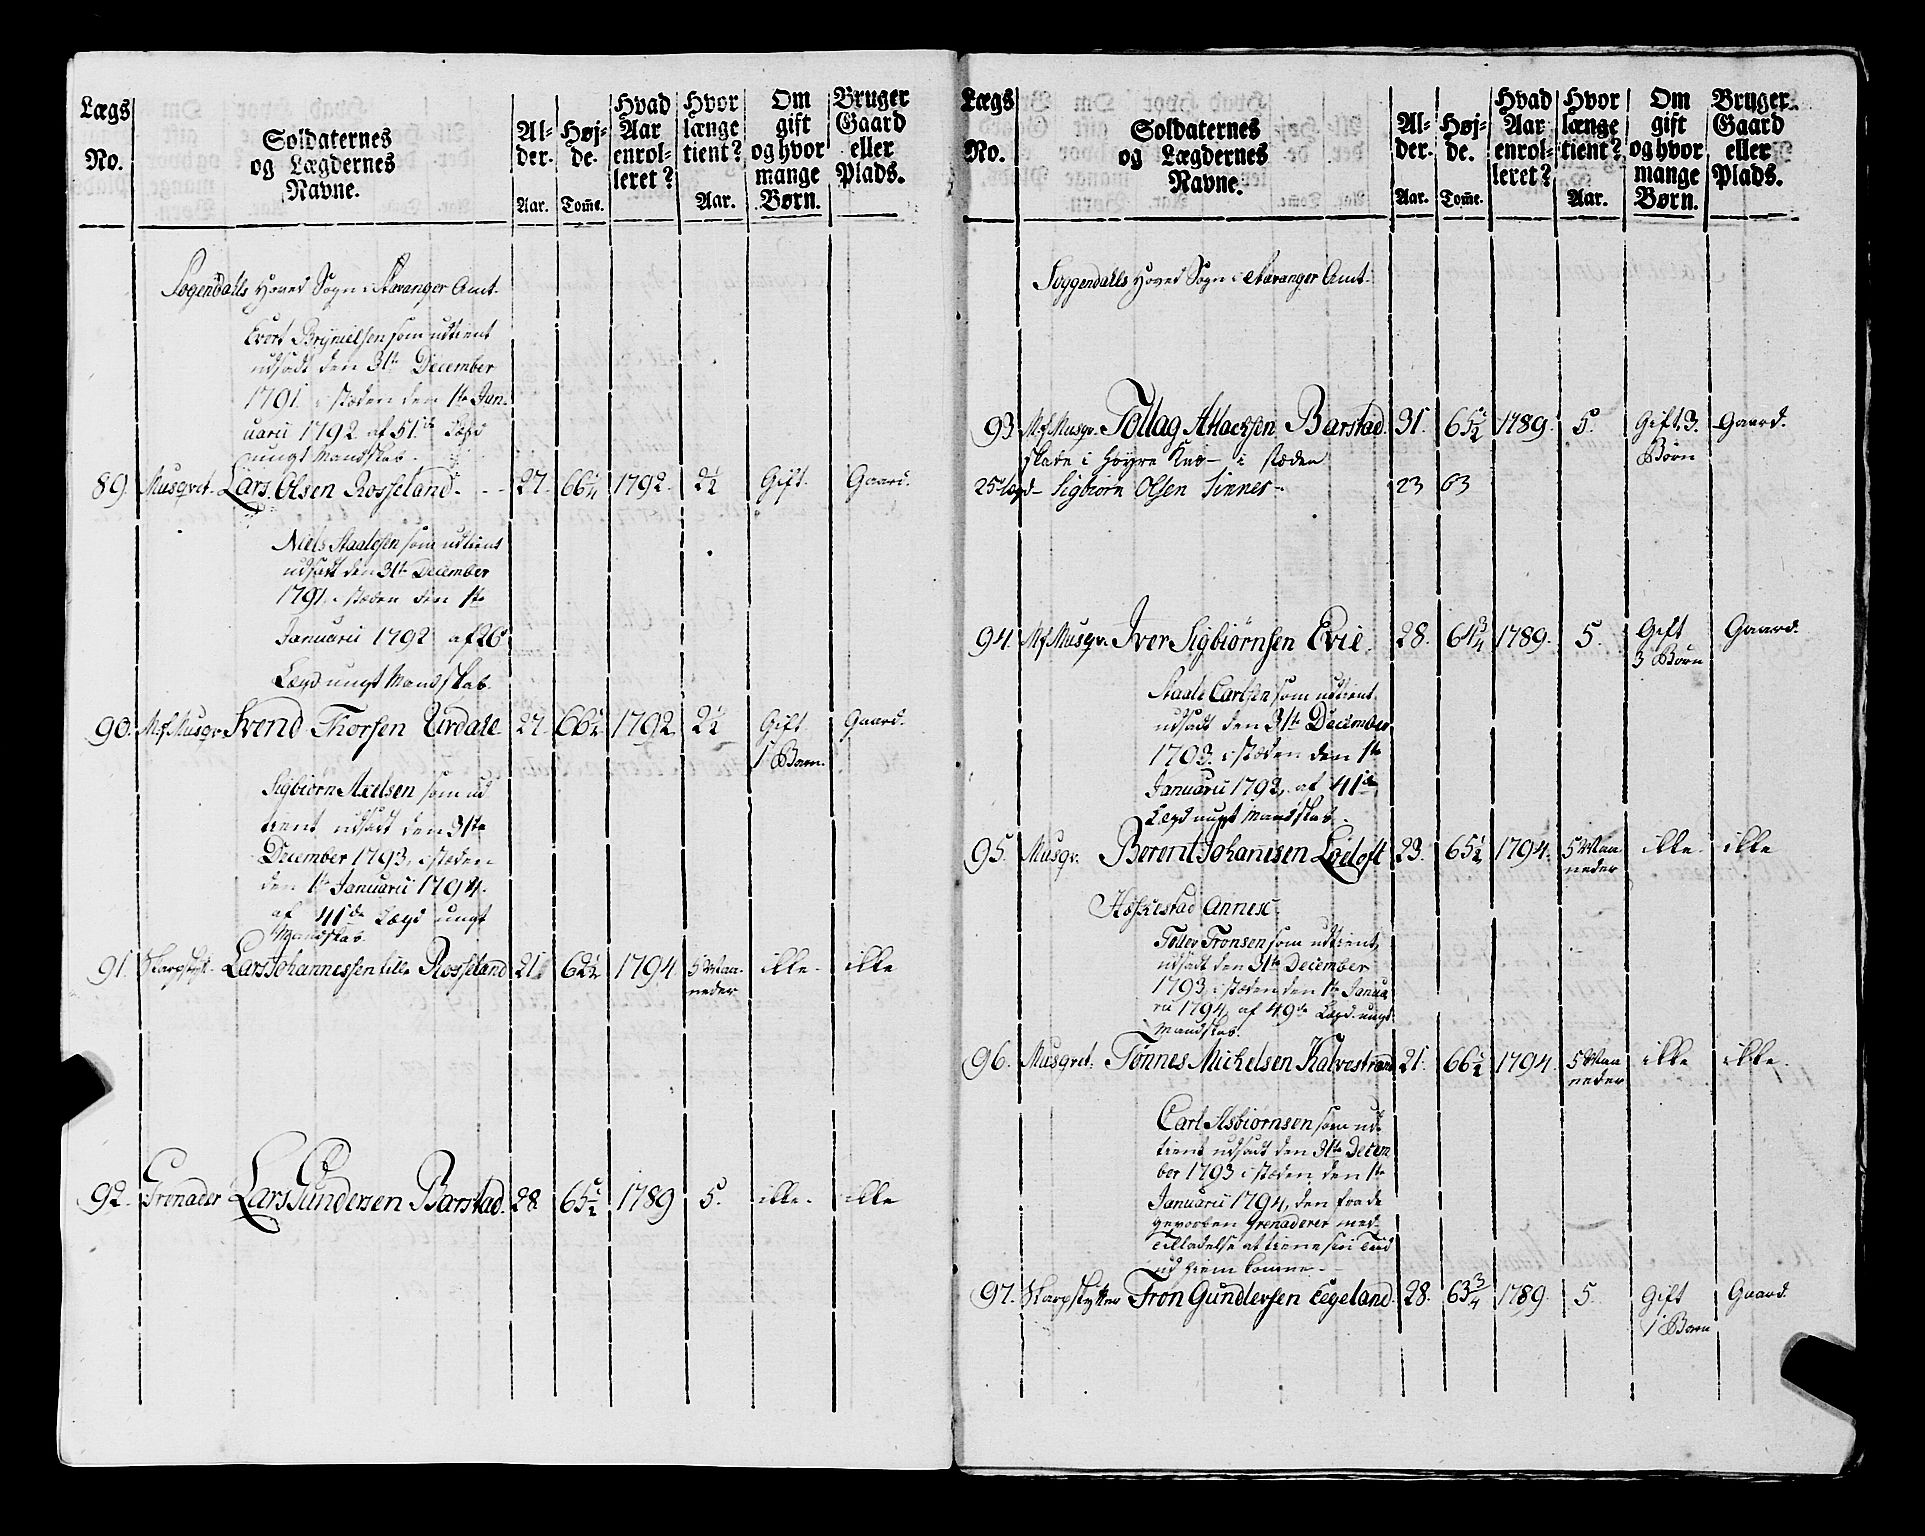 Lægs
No.
Soldaternes
og Lægdernes
Navne.
Al-
der.
Aar.
Høj-
de.
Tom̄e.
Hvad
Aar
enrol-
leret?
Hvor
længe
tient?
Aar.
Om
gift
og hvor
mange
Børn.
Bruger
Gaard
eller
Plads.
Sogendalls Hoved Sogn i Stavanger Amt.
Evert Brynielsen som udtient
udsadt den 31te December
1791. i stæden den 1te Jan-
uarii 1792 af 51de Lægd
ungt Mandskab.
89. Musqvet. Lars Olsen Rosseland. 27. 66 1/4 1792. 2 1/2 Gift. Gaard.
Niels Staalesen som udtient
udsadt den 31te December
1791. i stæden den 1te
Januarii 1792 af 26
Lægd ungt Mandskab.
90. M.f. Musqv. Svend Thorsen Urdale. 27. 66 1/2 1792. 2 1/2 Gift Gaard.
1 Barn.
Sigbiørn Axelsen som ud
tient udsadt den 31te
December 1793, i stæden
den 1te Januarii 1794.
af 41de Lægd ungt
Mandskab.
91. Skarpsk. Lars Johannessen lille Rosseland 21. 62 1/2 1794. 5 Maa ikke. ikke
neder
92. Grenader Lars Gundersen Barstad. 28. 65 1/2 1789 5. ikke. ikke
Lægs
No.
Soldaternes
og Lægdernes
Navne.
Al-
der.
Aar.
Høj-
de.
Tom̄e.
Hvad
Aar
enrol-
leret?
Hvor
længe
tient?
Aar.
Om
gift
og hvor
mange
Børn.
Bruger
Gaard
eller
Plads.
Soggendalls Hoved Sogn i Stavanger Amt.
93. M.f. Musqv. Tollag Atlacksen Barstad 31. 65 1/2 1789. 5. Gift. 3. Gaard.
skade i høyre Knæ – i stæden Børn
25 Lægd – Sigbiørn Olsen Sinnes 23 63
94. M.f. Musqv. Iver Sigbiørnsen Evie. 28. 64 3/4 1789. 5. Gift Gaard.
3 Børn
Staale Carlsen som udtient
udsadt den 31te December
1793. i stæden den 1te
Januarii 1793, af 41de
Lægd ungt Mandskab.
95. Musqv. Berent Johannesen Løeloft 23. 65 1/2 1794. 5 Maa ikke. ikke
neder
Hæskestad Annex.
Toller Tronsen som udtient
udsadt den 31te December
1793, i stæden den 1te Janua
rii 1794, af 49de Lægd. ungt
Mandskab.
96. Musqvet. Tønnes Mickelsen Kalvestrand 21. 66 1/2 1794. 5 Maa ikke ikke.
neder
Carl Asbiørnsen som ud
tient udsadt den 31te Decem
ber 1793 i stæden den 1te
Januarii 1794, den fra de
gevorben Grenaderer med
Tilladelse at tiene sin Tiid
ud hiem komne.
97. Skarpskytter Tron Gundersen Eegeland. 28. 63 3/4 1789. 5. Gift Gaard.
1 Barn